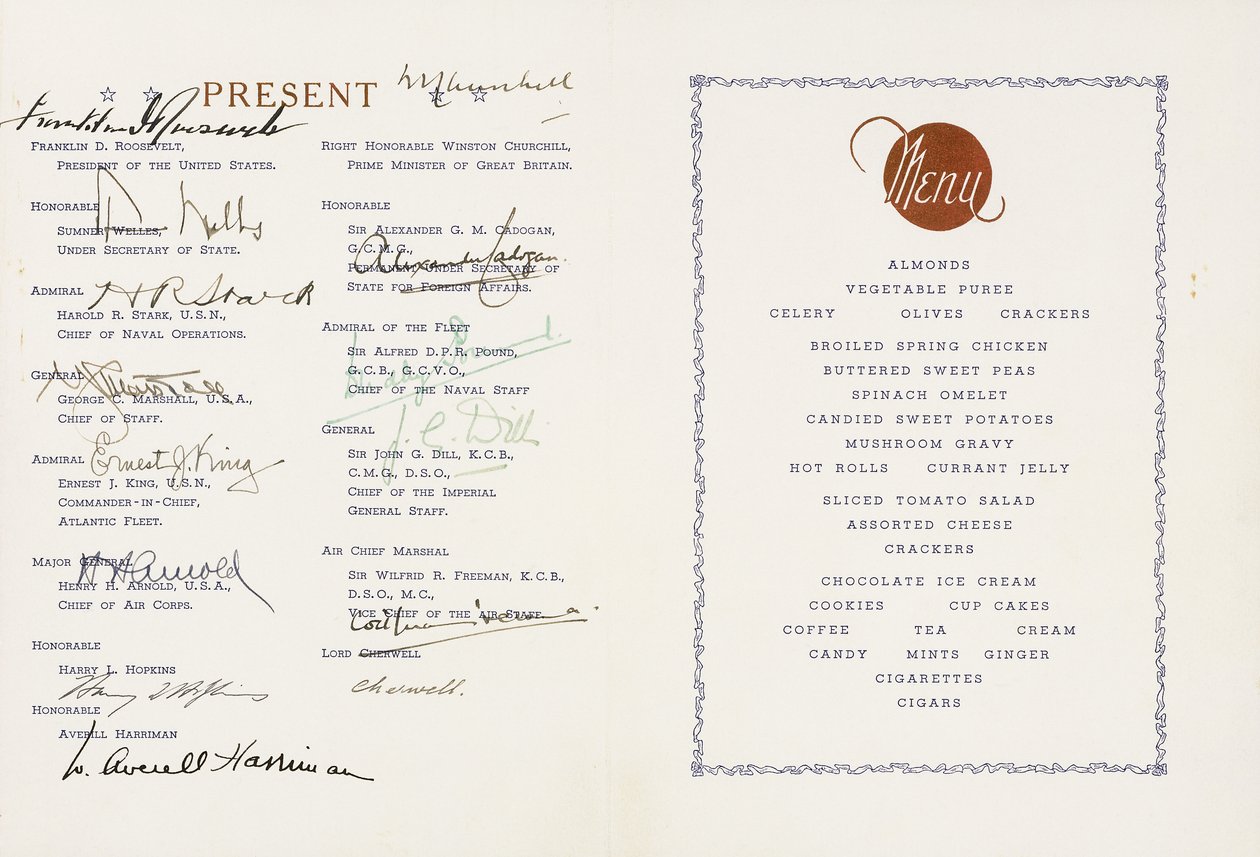 PRESENT
W S Churchill
Franklin D Roosevelt
FRANKLIN D. ROOSEVELT,
PRESIDENT OF THE UNITED STATES.
HONORABLE
SUMNER WELLES,
UNDER SECRETARY OF STATE.
ADMIRAL
H R Stark
HAROLD R. STARK, U.S.N.,
CHIEF OF NAVAL OPERATIONS.
GENERAL
GEORGE C. MARSHALL, U.S.A.,
CHIEF OF STAFF.
ADMIRAL
Ernest J. King
ERNEST J. KING, U.S.N.,
COMMANDER-IN-CHIEF,
ATLANTIC FLEET.
MAJOR GENERAL
H H Arnold
HENRY H. ARNOLD, U.S.A.,
CHIEF OF AIR CORPS.
HONORABLE
HARRY L. HOPKINS
Harry L Hopkins
HONORABLE
AVERILL HARRIMAN
W. Averell Harriman
RIGHT HONORABLE WINSTON CHURCHILL,
PRIME MINISTER OF GREAT BRITAIN.
HONORABLE
SIR ALEXANDER G. M. CADOGAN,
G.C.M.G.,
Alexander Cadogan.
PERMANENT UNDER SECRETARY OF
STATE FOR FOREIGN AFFAIRS.
ADMIRAL OF THE FLEET
SIR ALFRED D.P.R. POUND,
G.C.B., G.C.V.O.,
Dudley Pound.
CHIEF OF THE NAVAL STAFF
GENERAL
J. G. Dill
SIR JOHN G. DILL, K.C.B.,
C.M.G., D.S.O.,
CHIEF OF THE IMPERIAL
GENERAL STAFF.
AIR CHIEF MARSHAL
SIR WILFRID R. FREEMAN, K.C.B.,
D.S.O., M.C.,
VICE CHIEF OF THE AIR STAFF.
LORD CHERWELL
Cherwell.
MENU
ALMONDS
VEGETABLE PUREE
CELERY OLIVES CRACKERS
BROILED SPRING CHICKEN
BUTTERED SWEET PEAS
SPINACH OMELET
CANDIED SWEET POTATOES
MUSHROOM GRAVY
HOT ROLLS CURRANT JELLY
SLICED TOMATO SALAD
ASSORTED CHEESE
CRACKERS
CHOCOLATE ICE CREAM
COOKIES CUP CAKES
COFFEE TEA CREAM
CANDY MINTS GINGER
CIGARETTES
CIGARS